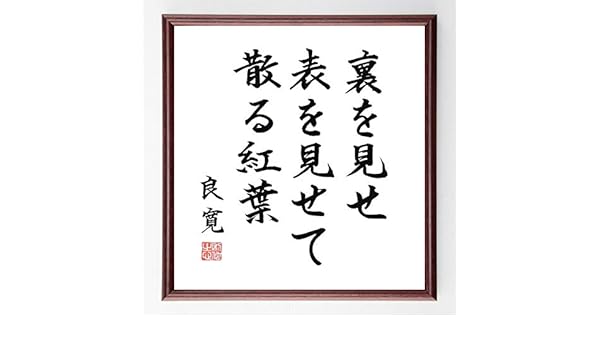 裏を見せ
表を見せて
散る紅葉
良寛